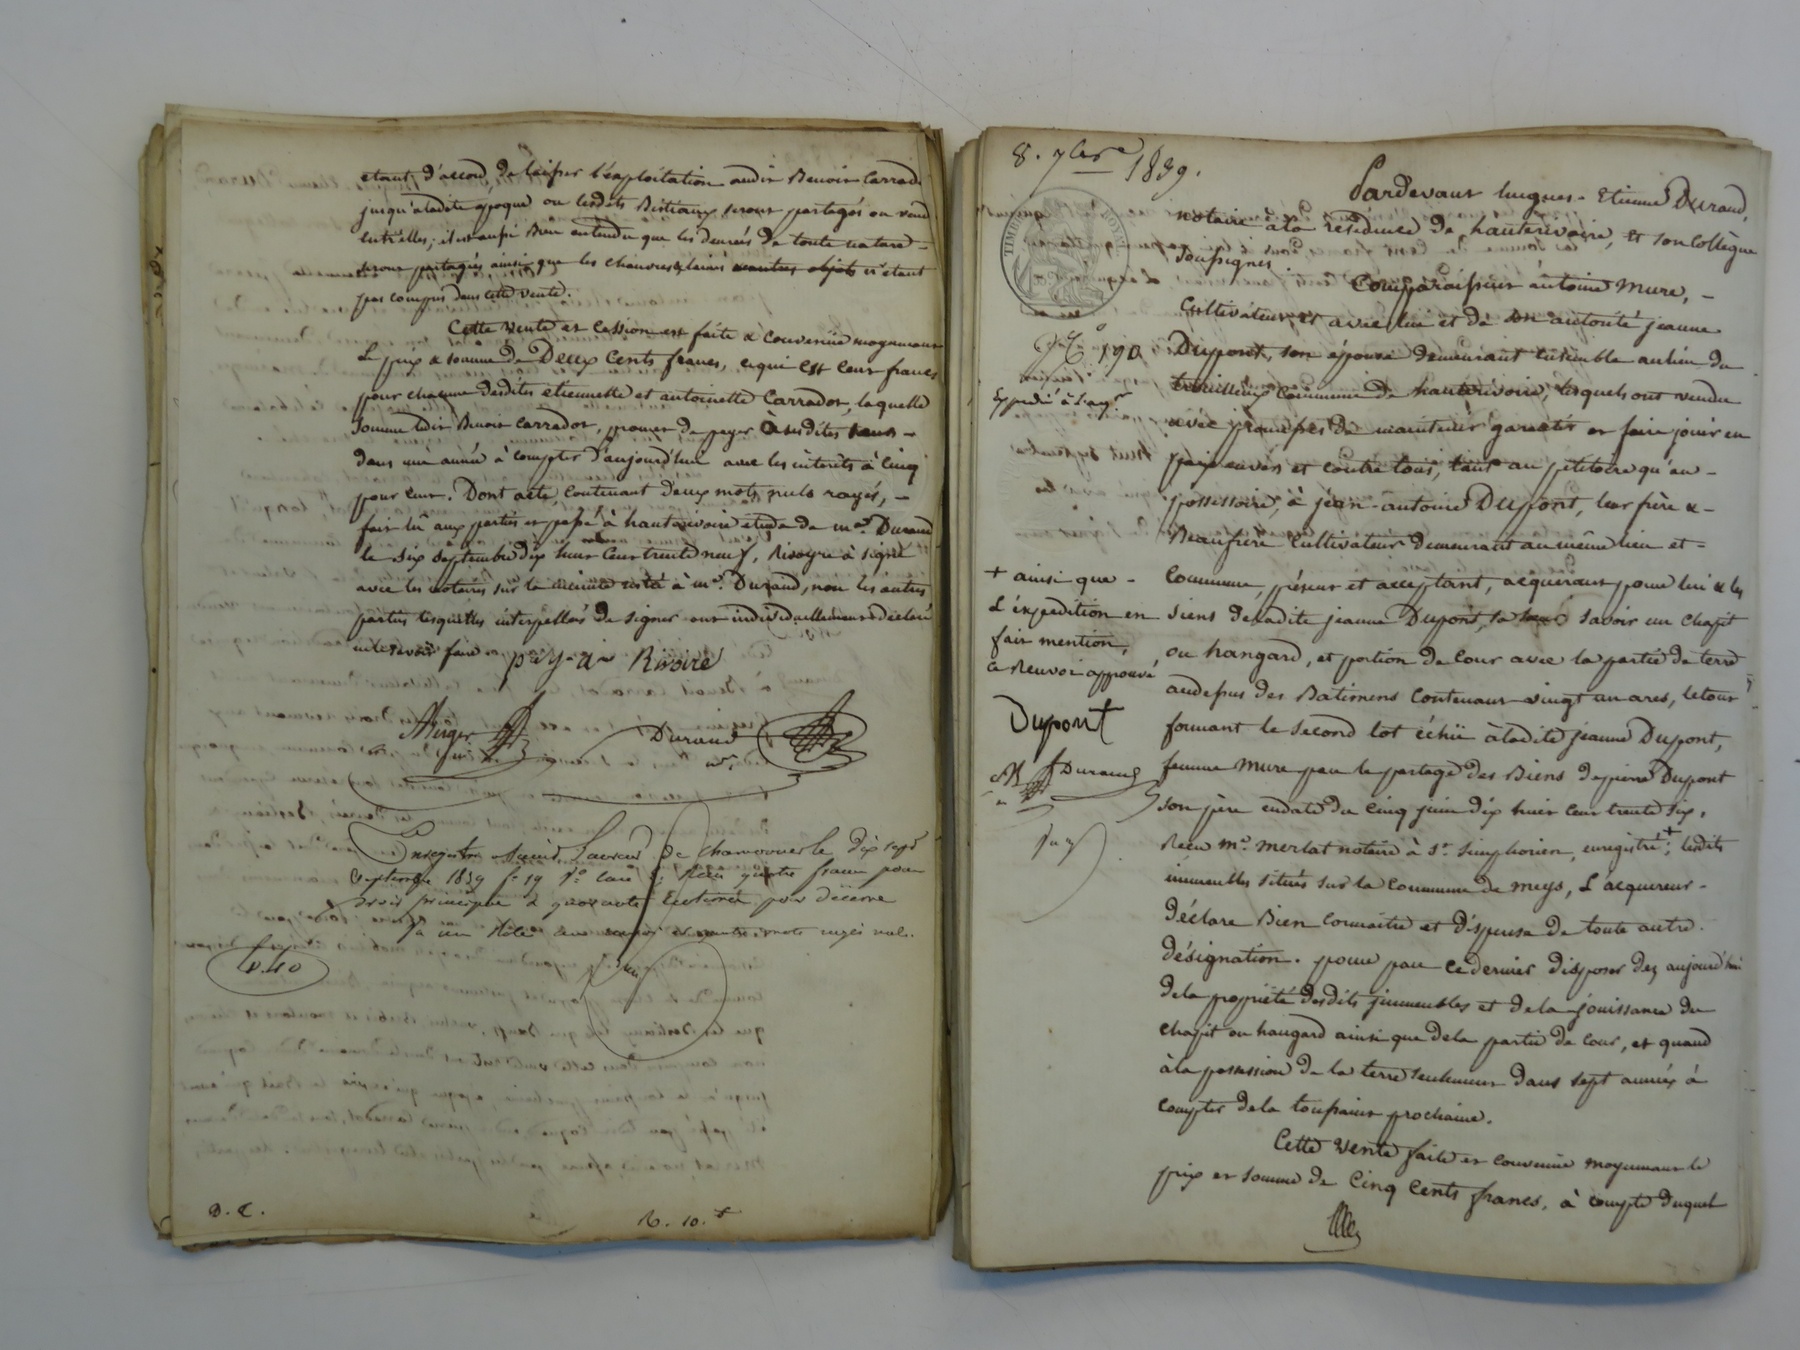 etant d'accord de laisser l'exploitation audit Benoit Carrad
jusqu'aladite époque ou lesdits Bestiaux seront partagés ou vend
entr'elles; il est aussi Bien entendu que les denrées de toute nature
seront partagées ainsi que les chanvres & laines n'etant
pas compris dans cette vente.
Cette vente et cession est faite & convenüe moyennant
le prix & somme de Deux Cents francs, ce qui est cent francs
pour chacune desdites etiennette et antoinette Carrador, laquelle
somme ledit Benoit Carrador, promet de payer à sesdites sœurs
dans une année à compter d'aujourd'hui avec les interêts à cinq
pour cent. Dont acte, contenant deux mots nuls rayés,
fait lû aux parties et passé à hauterivoire étude de me. Durand
le six septembre dix huit cent trente neuf, Rivoyre a signé
avec les notaires sur la minute restée à me. Durand, non les autres
parties lesquelles interpellées de signer ont individuellement déclaré
ne le savoir faire
Rivoire
Durand
Enregistré à Saint Laurent de Chamousset le dix sept
Septembre 1839 fo 19 Ro case reçu quatre francs pour
Droit principal & quarante centimes pour décime
4.40
D. C.
R. 10.
8. 7bre 1839.
Pardevant hugues-Etienne Durand,
notaire à la résidence de hauterivoire, et son Collègue
soussignés.
Comparaissent antoine Mure,
Cultivateur et avec lui et de son autorité jeanne
TIMBRE ROYAL
190
Dupont, son épouse demeurant ensemble au lieu du
commune de hauterivoire, lesquels ont vendu
avec promesses de maintenir garantir et faire jouir en
paix envers et contre tous, tant au pétitoire qu'au
possessoire, à jean-antoine Dupont, leur frère &
Beaufrère Cultivateur demeurant au même lieu et
Commune, présent et acceptant, acquéreur pour lui & les
siens de ladite jeanne Dupont, sa sœur savoir un chapit
ou hangard, et portion de cour avec la partie de terre
audessus des Batimens contenant vingt un ares, letout
formant le second lot échü à ladite jeanne Dupont,
femme Mure par le partage des Biens de pierre Dupont
son père en date du cinq juin dix huit cent trente six,
Reçu me. Merlat notaire à St. Simphorien, enregistré +; lesdits
immeubles situés sur la Commune de Meys, L'acquereur
déclare Bien connaitre et dispense de toute autre
désignation. pour par ce dernier disposer dez aujourd'hui
de la propriété desdits immeubles et de la jouissance du
chapit ou hangard ainsi que dela partie de cour, et quand
à la possession de la terre seulement dans sept années à
compter dela toussaint prochaine.
Cette Vente faite et convenüe moyennant le
prix et somme de Cinq Cents francs, à compte duquel
+ ainsi que
L'expedition en
fait mention,
ce Renvoi approuvé
Dupont
Durand